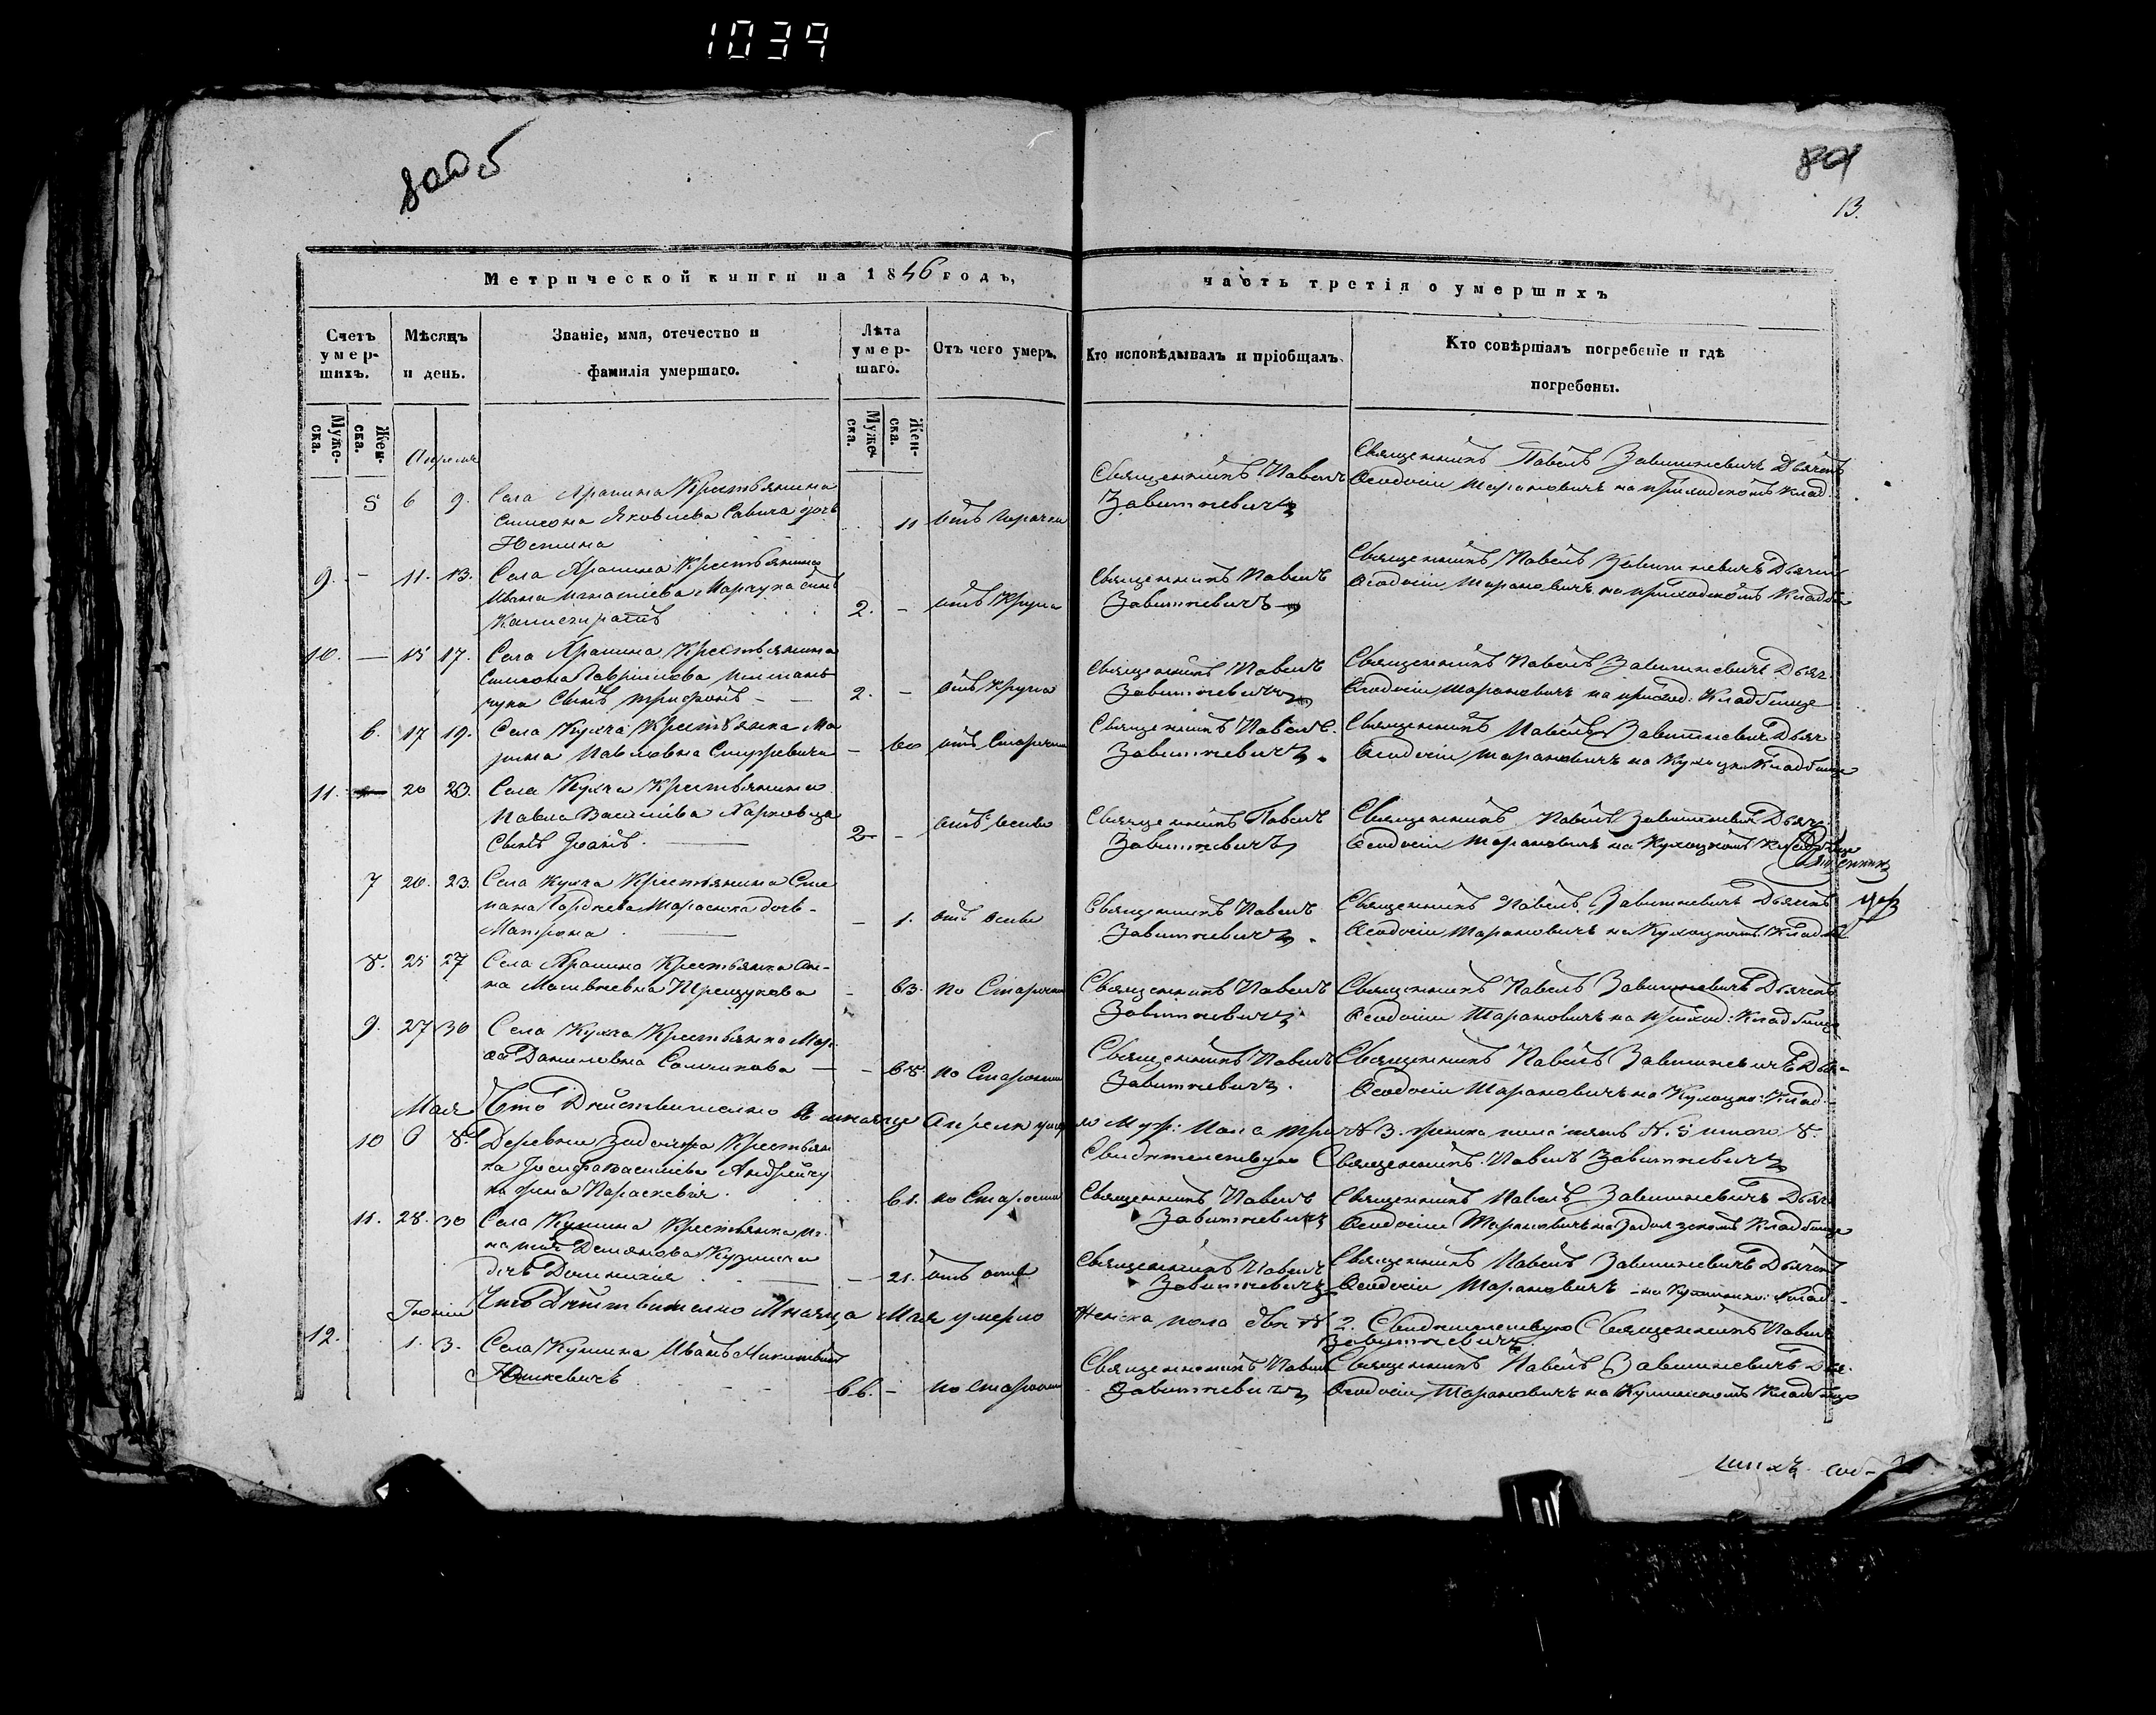 1039
800 б
801
13.
Метрической книги на 1846 годъ,
часть третія о умершихъ
Счетъ умершихъ.
Мѣсяцъ и день.
Званіе, имя, отечество и фамилія умершаго.
Лѣта умершаго.
Отъ чего умеръ.
Кто исповѣдывалъ и пріобщалъ.
Кто совѣршалъ погребеніе и гдѣ погребены.
Мужеска.
Женска.
Мужеска.
Женска.
Апреля
5 6 9. Села Крестьянина
Симеона Яковлева Савича дочь
Устина 11
Священникъ Павелъ
Завитневичъ
Священникъ Павелъ Завитневичъ Дьячекъ
Ѳеодосій Тарановичъ на приходскомъ клад
9. - 11. 13. Села Крестьянина
Ивана Игнатіева Марчука сынъ
2. - отъ Крупа
Священникъ Павелъ
Завитневичъ
Священникъ Павелъ Завитневичъ Дьячекъ
Ѳеодосій Тарановичъ на приходскомъ Кладби
10. — 15 17. Села Крестьянина
Симеона Гаврилова
чука Сынъ Трифонъ - 2. - отъ Крупа
Священникъ Павелъ
Завитневичъ
Священникъ Павелъ Завитневичъ Дьяч.
Ѳеодосій Тарановичъ на приход: Кладбище
6. 17 19. Села Кухча Крестьянка Ма
рина Павловна - 60 отъ Старости
Священникъ Павелъ
Завитневичъ.
Священникъ Павелъ Завитневичъ Дьяч
Ѳеодосій Тарановичъ на Кухоцк: Кладбище
11. - 20 23. Села Кухча Крестьянина
Павла Василіева
Сынъ Іоанъ. 2 - отъ оспы
Священникъ Павелъ
Завитневичъ
Священникъ Павелъ Завитневичъ Дьяч.
Ѳеодосій Тарановичъ на Кухоцкомъ Кладбище
7 20. 23. Села Кухча Крестьянина Сте
пана Гордиева дочь -
Матрона - 1. отъ оспы
Священникъ Павелъ
Завитневичъ.
Священникъ Павелъ Завитневичъ Дьячекъ
Ѳеодосій Тарановичъ на Кухоцкомъ Кладби
8. 25 27 Села Крестьянка Ан-
на Матвѣевна - 63. по Старости
Священникъ Павелъ
Завитневичъ
Священникъ Павелъ Завитневичъ Дьячекъ
Ѳеодосій Тарановичъ на приход: Кладбище
9. 27 30 Села Кухча Крестьянка Мар
ѳа Даниловна — - 68. по Старости
Священникъ Павелъ
Завитневичъ.
Священникъ Павелъ Завитневичъ Дья-
Ѳеодосій Тарановичъ на Кухоцко: Клад-
Что Дѣйствительно в мѣсяце Апрели умерло Муж: Пола три № 3. женска пола пять № 5 итого 8.
Свидительствую Священникъ Павелъ Завитневичъ
Мая
10 6 8. Деревни Крестьян
ка Василіева
жена Параскевія. 61. по Старости
Священникъ Павелъ
Завитневичъ
Священникъ Павелъ Завитневичъ Дьяч
Ѳеодосій Тарановичъ на Кладбище
11. 28. 30 Села Кутина Крестьянка
дочь Доминикія - 21. отъ
Священникъ Павелъ
Завитневичъ
Священникъ Павелъ Завитневичъ Дьячекъ
Ѳеодосій Тарановичъ - на Клад-
Что Дѣйствительно Мѣсяца Мая умерло Женска пола две № 2. Свидительствую Священникъ Павелъ
Завитневичъ
Іюнія
12. 1. 3. Села Кутина Иванъ Никитинъ
Юшкевичъ 66. - по старости
Священникъ Павелъ
Завитневичъ
Священникъ Павелъ Завитневичъ Дья.
Ѳеодосій Тарановичъ на Кутинскомъ Кладбище